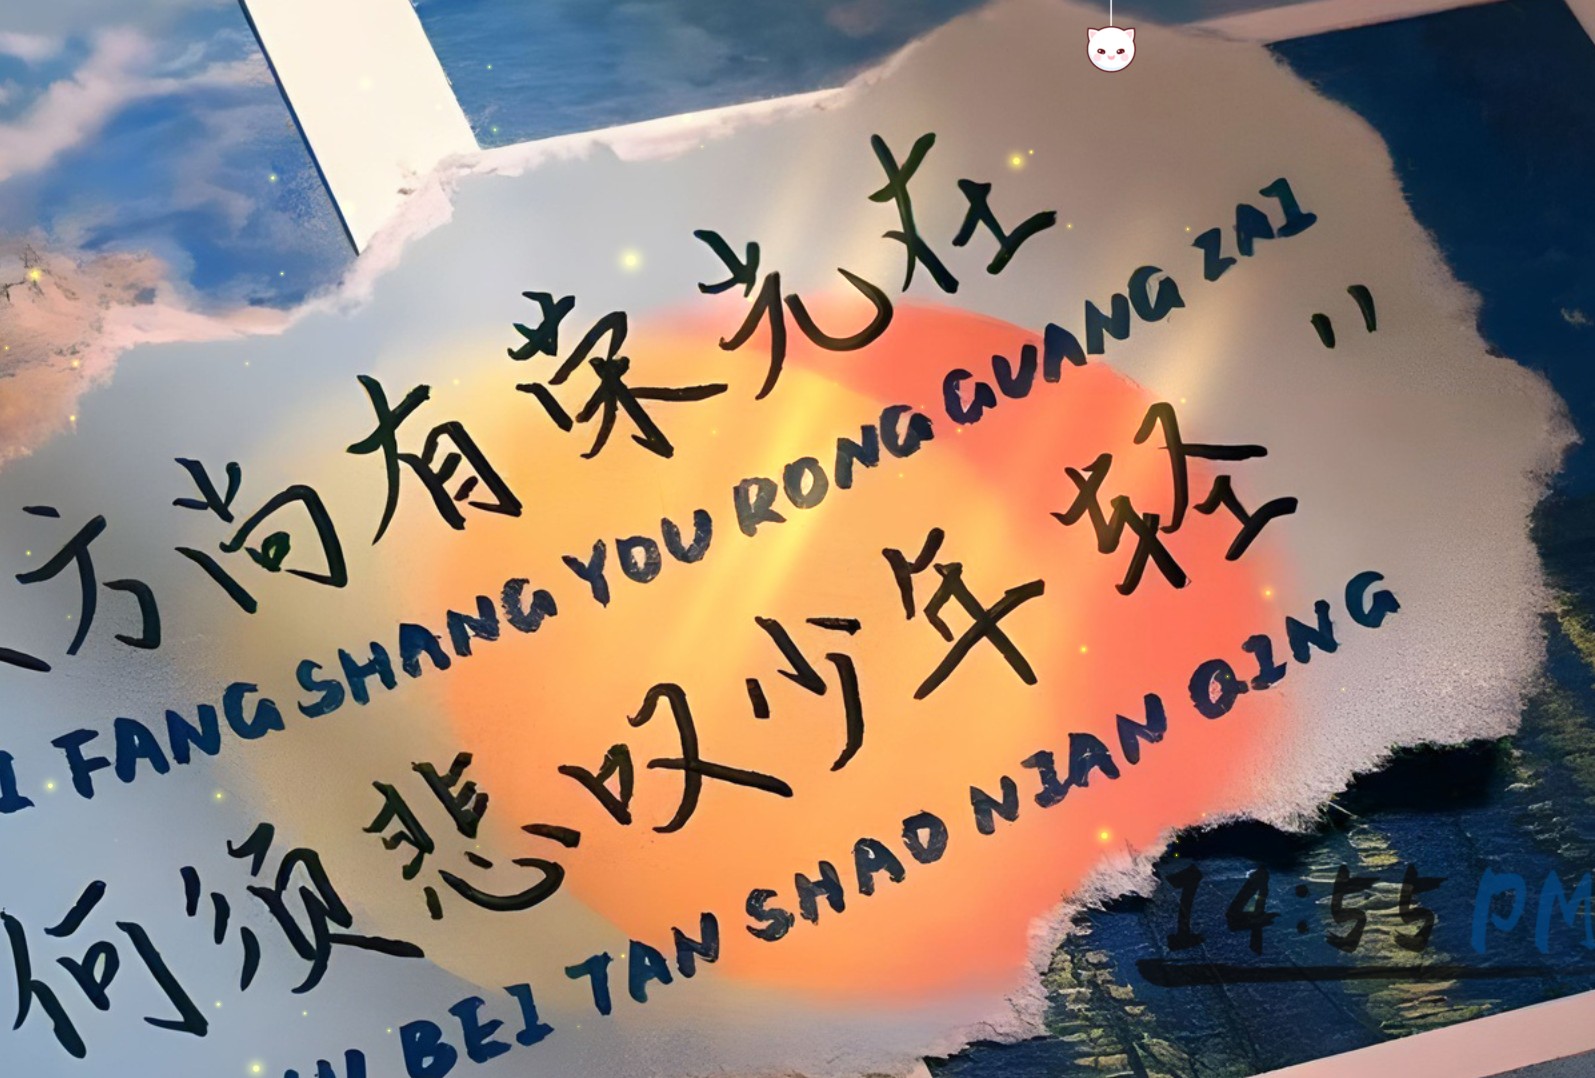 方尚有荣光在
I FANG SHANG YOU RONG GUANG ZAI
"
何须悲叹少年轻
BEI TAN SHAO NIAN QING
14:55 PM